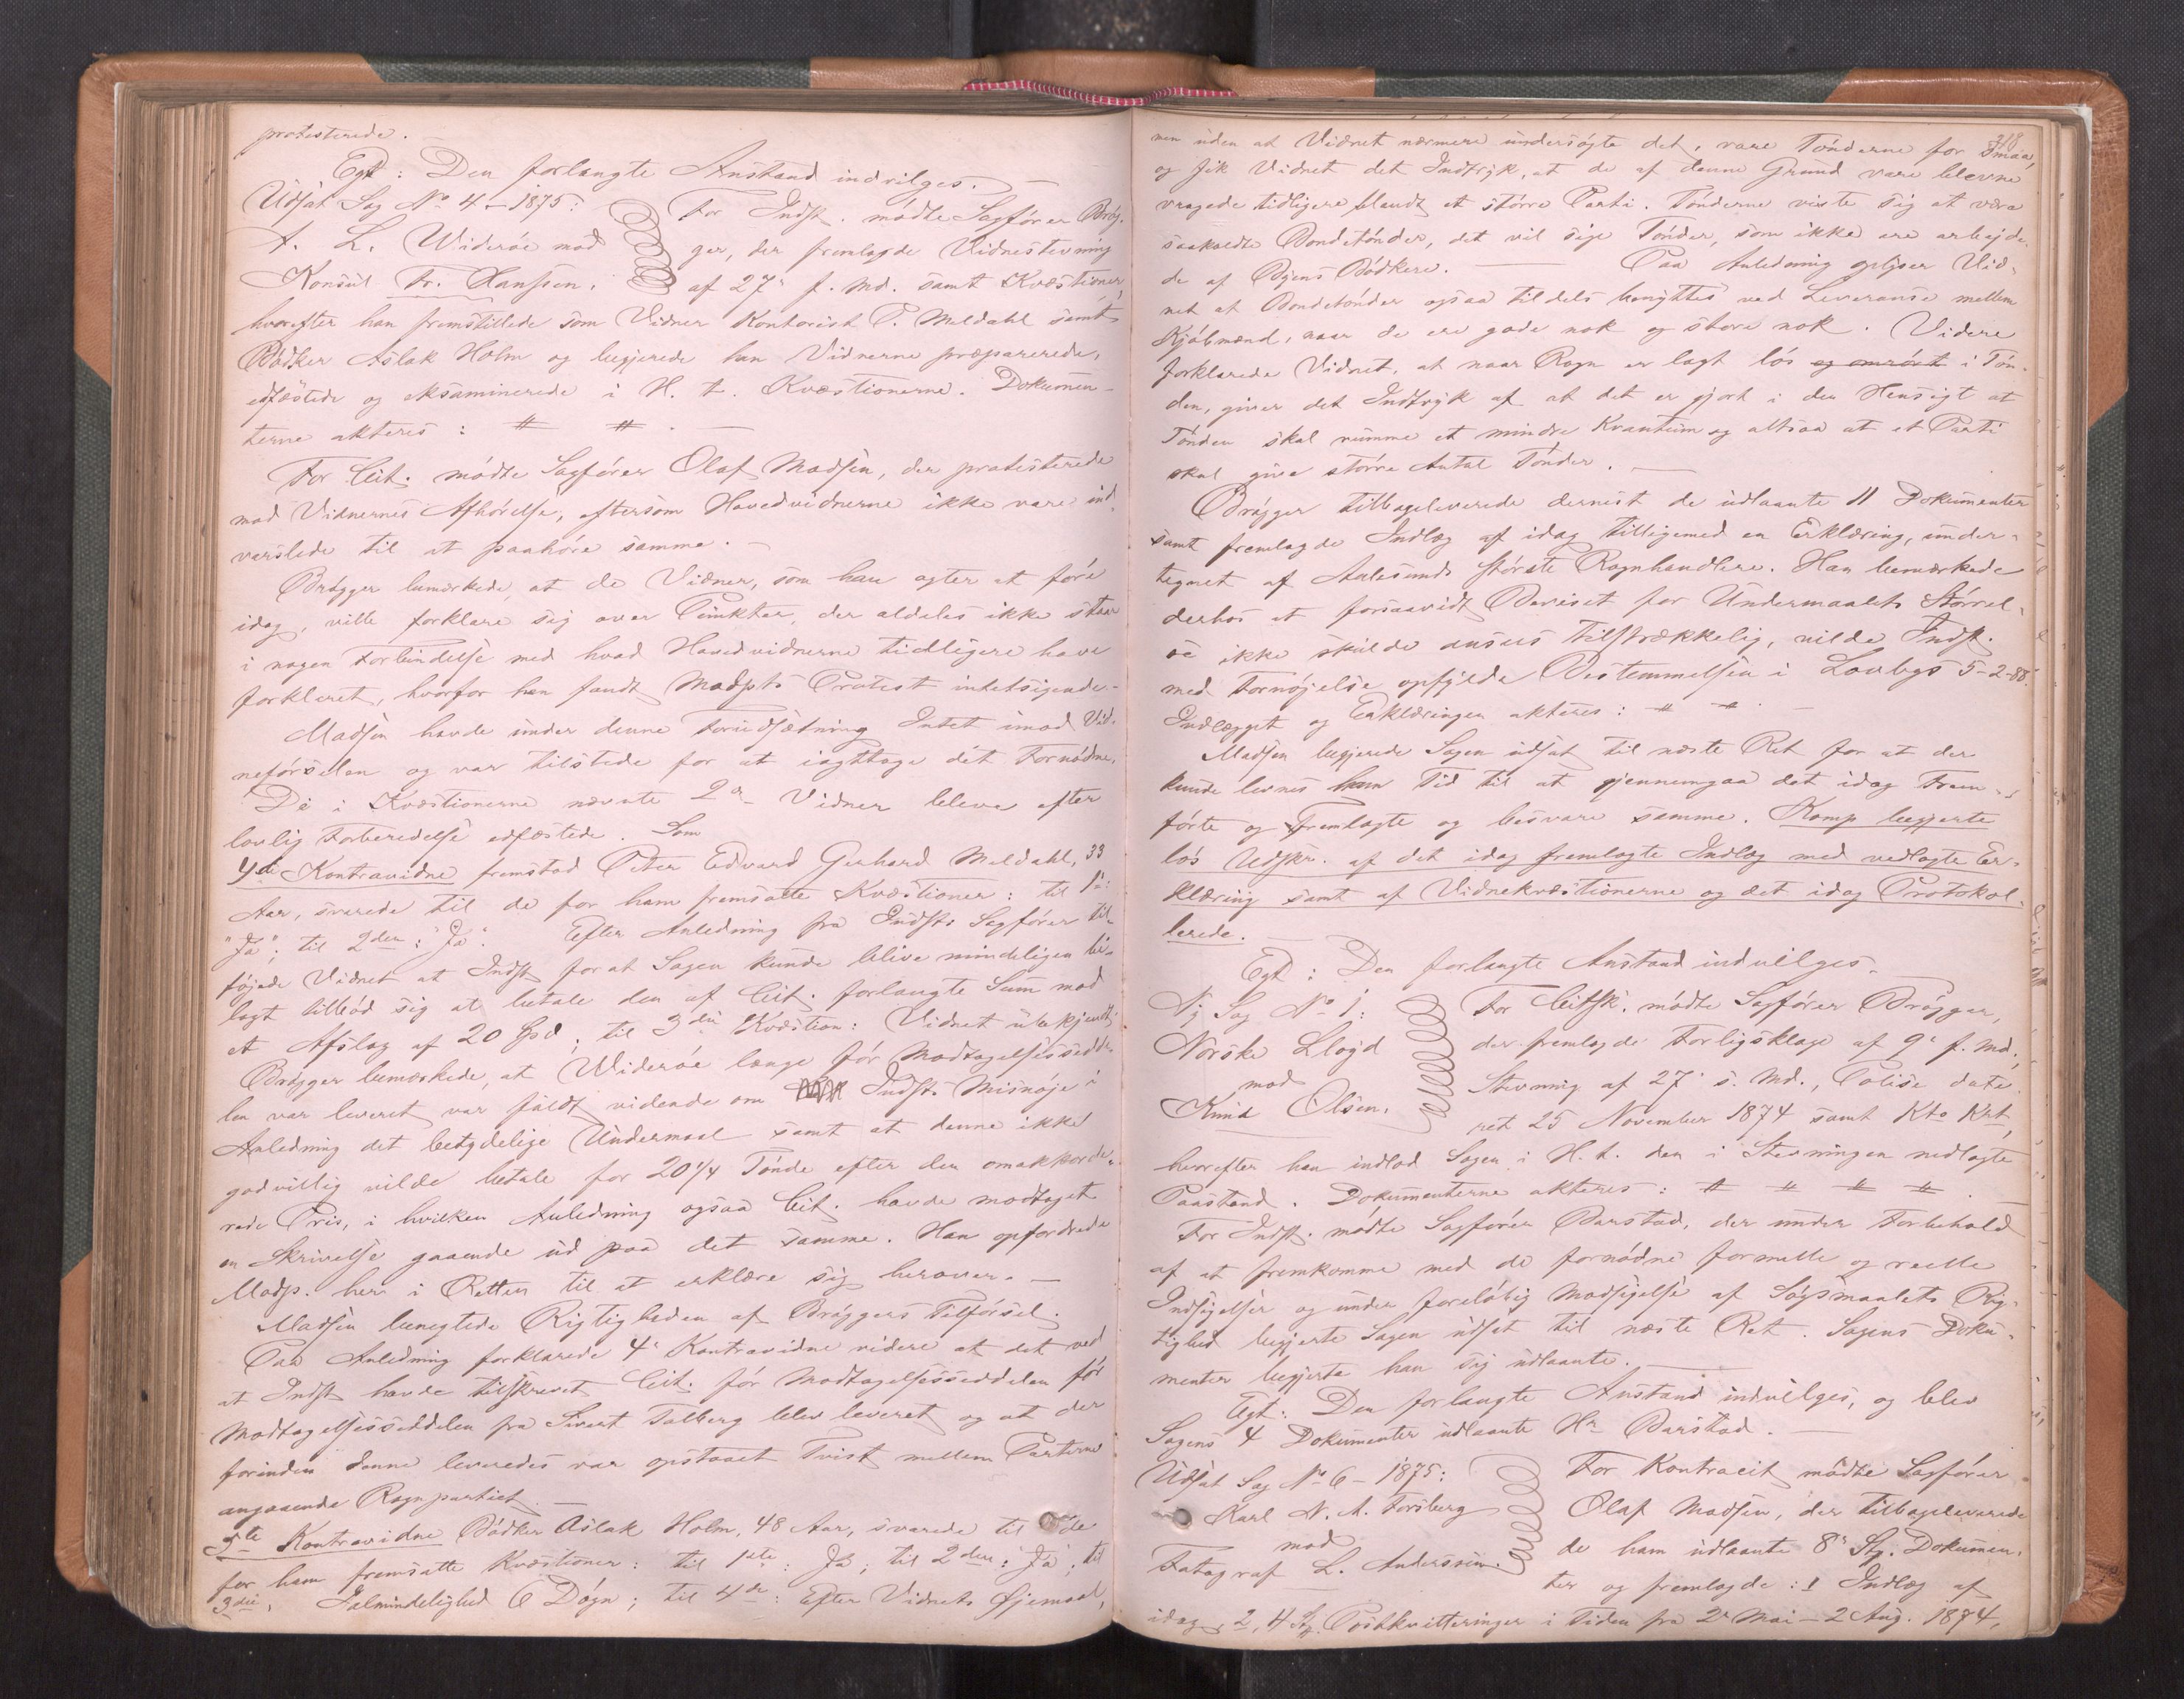 protesterede.
Egt: Den forlangte Anstand indvilges.
Udsat Sag No 4 - 1875:
A. L. Widerøe mod
Konsul Fr. Hanssen.
For Indst. mødte Sagfører Brøg-
ger, der fremlagde Vidnestevning
af 27' f. Md. samt Kvæstioner,
hvorefter han fremstillede som Vidner Kontorist P. Meldahl samt
Bødker Aslak Holm og begjerede han Vidnerne præparerede,
edfæstede og eksaminerede i H. t. Kvæstionerne. Dokumen-
terne akteres: # #.
For Cit. mødte Sagfører Olaf Madsen, der protesterede
mod Vidnernes Afhørelse, eftersom Hovedvidnerne ikke vare ind-
varslede til at paahøre samme.
Brøgger bemærkede, at de Vidner, som han agter at føre
idag, ville forklare sig over Punkter, der aldeles ikke staar
i nogen Forbindelse med hvad Hovedvidnerne tidligere have
forklaret, hvorfor han fandt Madspts Protest intetsigende.
Madsen havde under denne Forudsætning Intet imod Vid-
neførselen og var tilstede for at iagttage det Fornødne.
De i Kvæstionerne nævnte 2de Vidner bleve efter
lovlig Forberedelse edfæstede. Som
4de Kontravidne fremstod Peter Edvard Gerhard Meldahl, 33
Aar, svarede til de for ham fremsatte Kvæstioner: til 1ste:
"Ja"; til 2den: "Ja". Efter Anledning fra Indsts Sagfører til-
føjede Vidnet at Indst for at Sagen kunde blive mindeligen bi-
lagt tilbød sig at betale den af Cit. forlangte Sum mod
et Afslag af 20 Spd; til 3die Kvæstion: Vidnet ubekjendt.
Brøgger bemærkede, at Widerøe længe før Modtagelsessedde-
len var leveret var fuldt vidende om Indsts Misnøje i
Anledning det betydelige Undermaal samt at denne ikke
godvillig vilde betale for 20 1/4 Tønde efter den omakkorde-
rede Pris, i hvilken Anledning ogsaa Cit. havde modtaget
en Skrivelse gaaende ud paa det samme. Han opfordrede
Modp. her i Retten til at erklære sig herover.
Madsen benegtede Rigtigheden af Brøggers Tilførsel.
Paa Anledning forklarede 4' Kontravidne videre at det ved
at Indst havde tilskrevet Cit. før Modtagelsesseddelen før
Modtagelsesseddelen fra Sivert Talberg blev leveret og at der
forinden denne leveredes var opstaaet Tvist mellem Parterne
angaaende Rognpartiet.
5te Kontravidne Bødker Aslak Holm, 48 Aar, svarede til de
for ham fremsatte Kvæstioner: til 1ste: Ja; til 2den: Ja; til
3die: I almindelighed 6 Døgn; til 4de: Efter Vidnets Øjemaal,
318
men uden at Vidnet nærmere undersøgte det, vare Tønderne for Smaa,
og fik Vidnet det Indtryk, at de af denne Grund vare blevne
vragede tidligere blandt et større Parti. Tønderne viste sig at være
saakaldte Bondetønder, det vil sige Tønder, som ikke ere arbejde-
de af Byens Bødkere. Paa Anledning oplyser Vid-
net at Bondetønder ogsaa tildels benyttes ved Leveranse mellem
Kjøbmænd, naar de ere gode nok og store nok. Videre
forklarede Vidnet, at naar Rogn er lagt løs og omrørt i Tøn-
den, giver det Indtryk af at det er gjort i den Hensigt at
Tønden skal rumme et mindre Kvantum og altsaa at et Parti
skal give større Antal Tønder.
Brøgger tilbageleverede dernest de udlaante 11 Dokumenter
samt fremlagde Indlæg af idag tilligemed en Erklæring, under-
tegnet af Aalesunds største Rognhandlere. Han bemærkede
derhos at forsaavidt Beviset for Undermaalets Størrel-
se ikke skulde ansees tilstrækkelig, vilde Indst.
med Fornøjelse opfylde Bestemmelsen i Lovbogs 5-2-88.
Indlægget og Erklæringen akteres: # #.
Madsen begjerede Sagen udsat til næste Ret for at der
kunde levnes ham Tid til at gjennemgaa det idag Frem-
førte og Fremlagte og besvare samme. Komp begjerte
løs Udskr. af det idag fremlagte Indlæg med vedlagte Er-
klæring samt af Vidnekvæstionerne og det idag Protokol-
lerede.
Egt: Den forlangte Anstand indvilges.
Ny Sag No 1:
Norske Lloyd
mod
Knud Olsen.
For Citsk. mødte Sagfører Brøgger,
der fremlagde Forligsklage af 9' f. Md,
Stevning af 27' s. Md., Polise date-
ret 25 November 1874 samt Kto Krt,
hvorefter han indlod Sagen i H. t. den i Stevningen nedlagte
Paastand. Dokumenterne akteres: # # # #.
For Indst. mødte Sagfører Barstad, der under Forbehold
af at fremkomme med de fornødne formelle og reelle
Indsigelser og under foreløbig Modsigelse af Søgsmaalets Rig-
tighed begjerte Sagen udsat til næste Ret. Sagens Doku-
menter begjerte han sig udlaante.
Egt: Den forlangte Anstand indvilges, og blev
Sagens 4 Dokumenter udlaante Hr Barstad.
Udsat Sag No 6 - 1875:
Karl N. A. Forsberg
mod
Fotograf L. Anderssen.
For Kontracit mødte Sagfører
Olaf Madsen, der tilbageleverede
de ham udlaante 8' St. Dokumen-
ter og fremlagde: 1 Indlæg af
idag, 2, 4 St. Postkvitteringer i Tiden fra 2' Mai - 2 Aug. 1874,